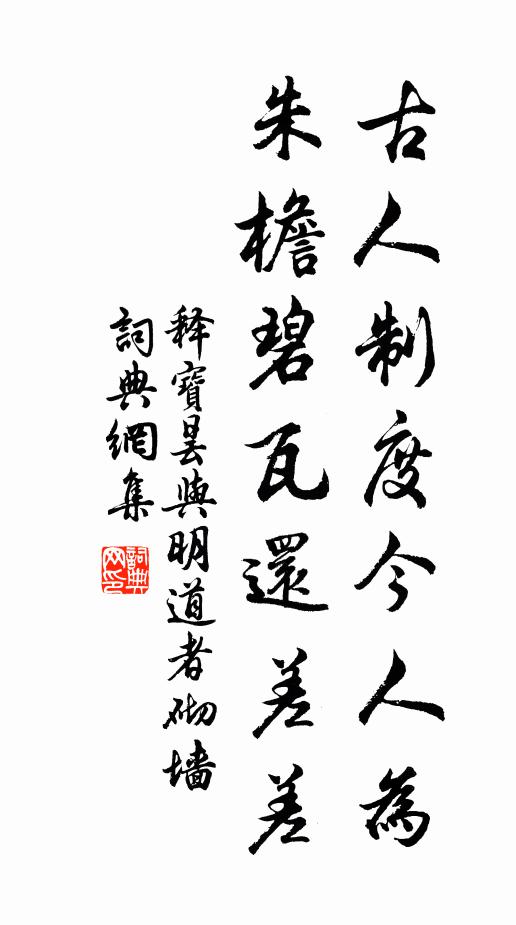 古人制度今人為
朱檐碧瓦還差差
释寶曇與明道者砌墙
詞典網集
詞典網印